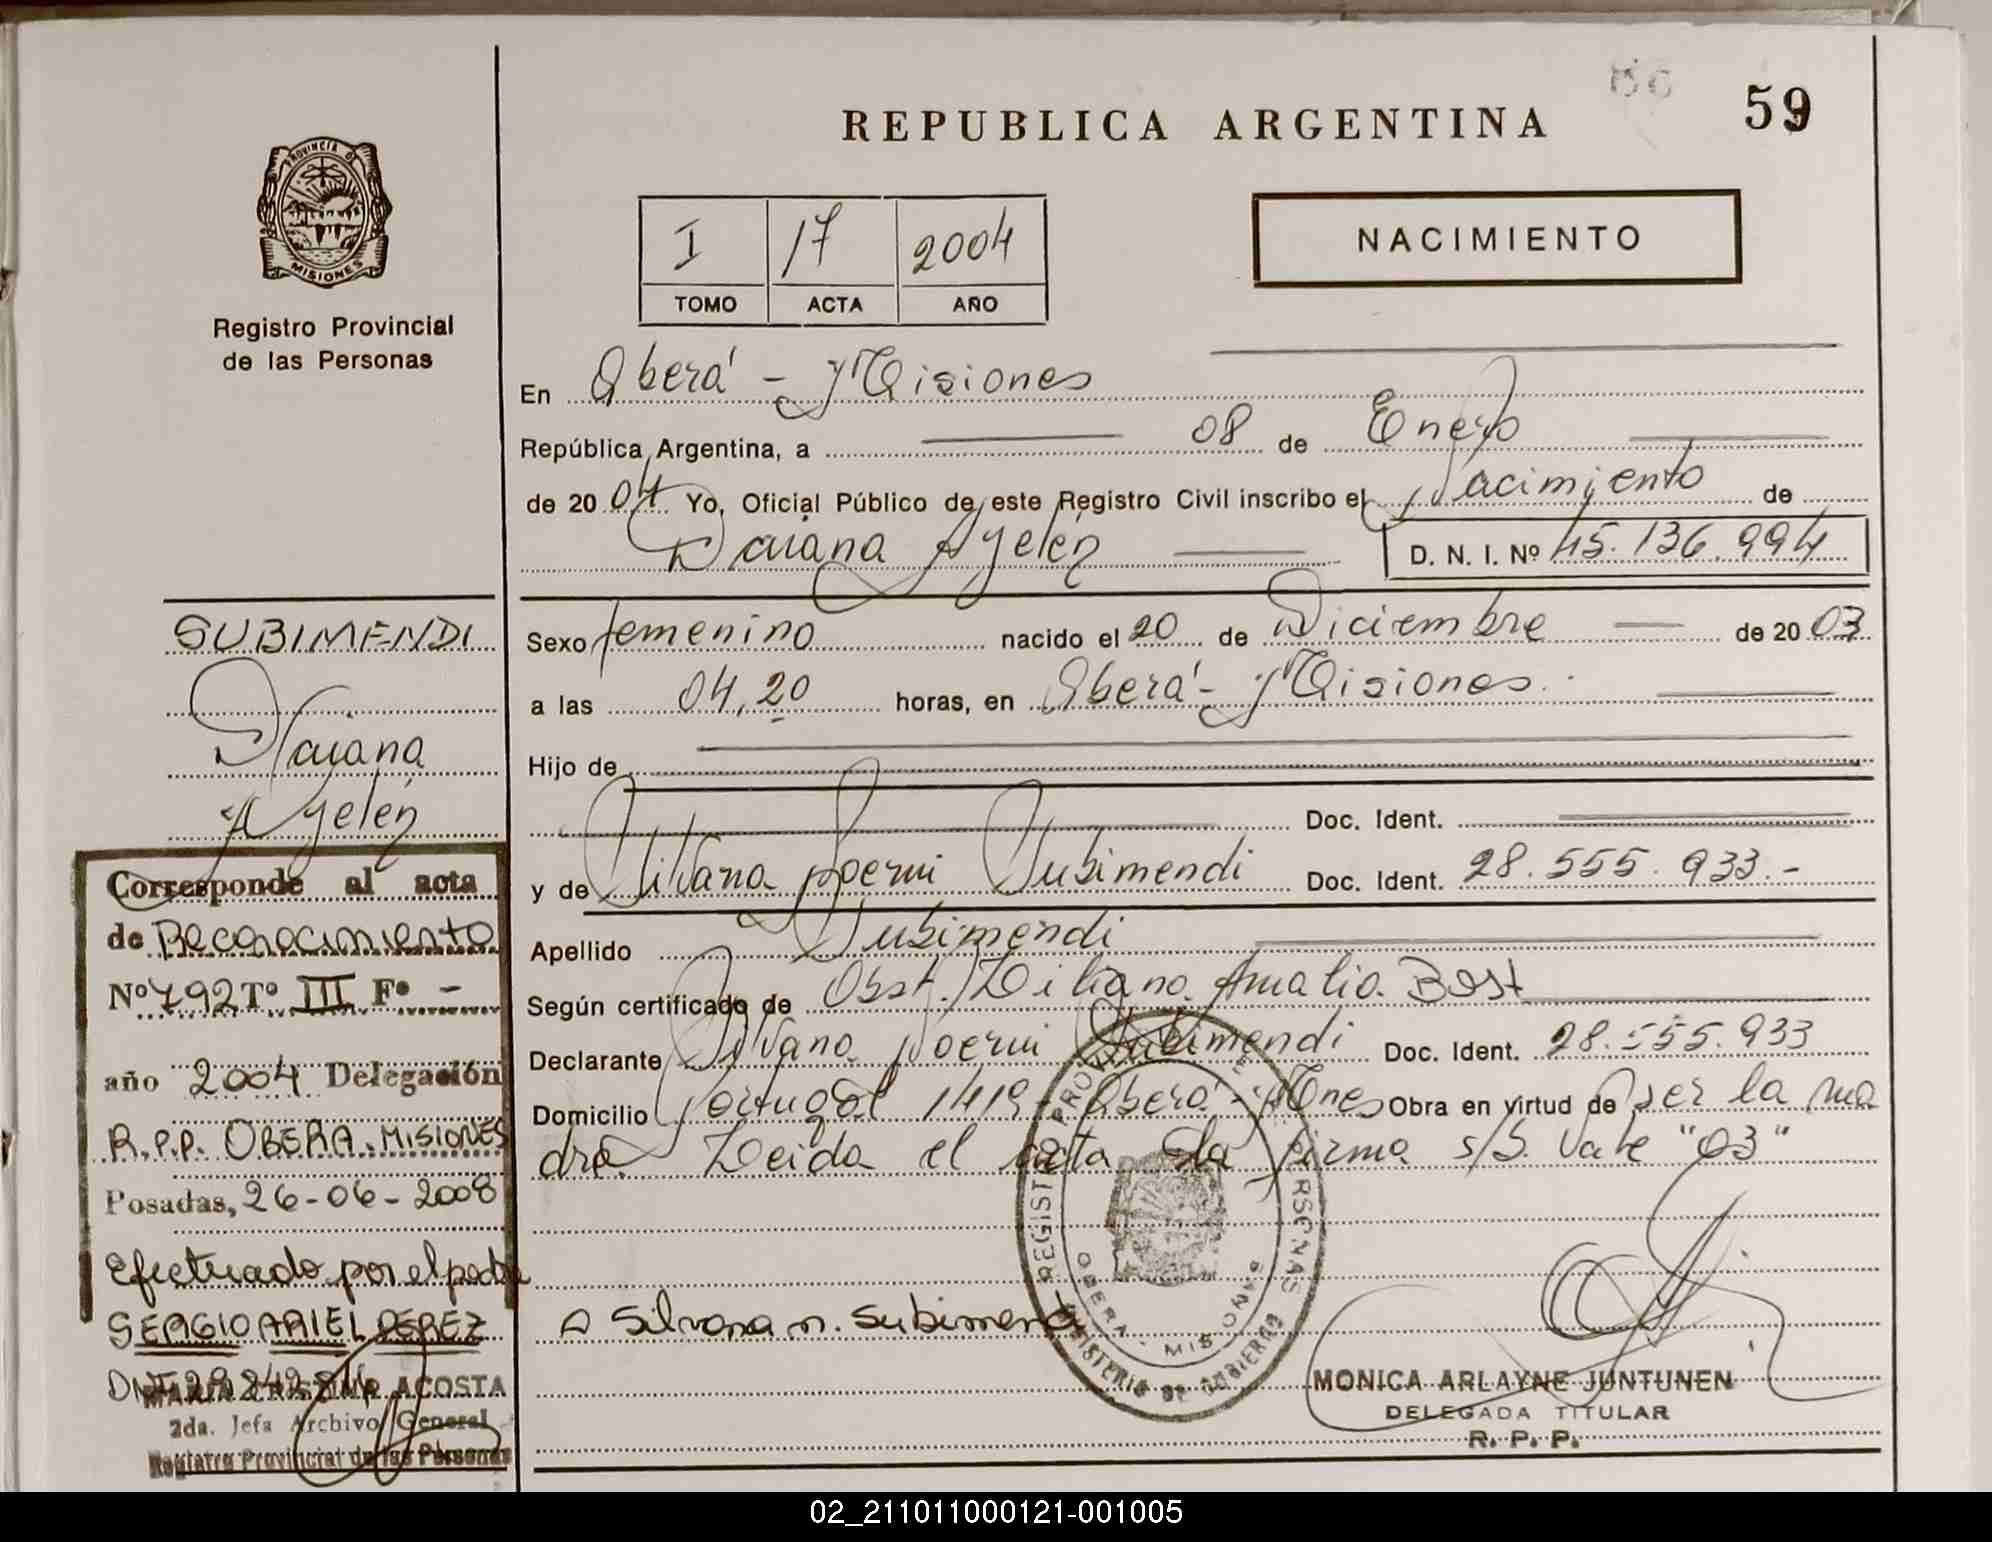 59
REPUBLICA ARGENTINA
PROVINCIA DE
MISIONES
Registro Provincial
de las Personas
I 17 2004
TOMO ACTA AÑO
NACIMIENTO
En Oberá - Misiones
República Argentina, a 08 de Enero
de 2004 Yo, Oficial Público de este Registro Civil inscribo el Nacimiento de
Daiana Ayelén D. N. I. Nº 45.136.994
Sexo femenino nacido el 20 de Diciembre de 2003
a las 04,20 horas, en Oberá - Misiones.
Hijo de
Doc. Ident.
y de Silvana Noemi Subimendi Doc. Ident. 28.555.933.-
Apellido Subimendi
Según certificado de Obst. Liliana Amalia Best
Declarante Silvana Noemi Subimendi Doc. Ident. 28.555.933
Domicilio Portugal 1419 - Oberá - Mnes Obra en virtud de ser la ma
dre Leida el acta la firma s/S. Vale "03"
Silvana n. Subimendi
MONICA ARLAYNE JUNTUNEN
DELEGADA TITULAR
R. P. P.
OBERA - MISIONES
MINISTERIO DE GOBIERNO
SUBIMENDI
Daiana
Ayelén
Corresponde al acta
de Reconocimiento
Nº 792 Tº III Fº -
año 2004 Delegación
R.P.P. OBERA - MISIONES
Posadas, 26-06-2008
Efectuado por el padre
SERGIO ARIEL PEREZ
ACOSTA
2da. Jefa Archivo General
Registro Provincial de las Personas
02_211011000121-001005